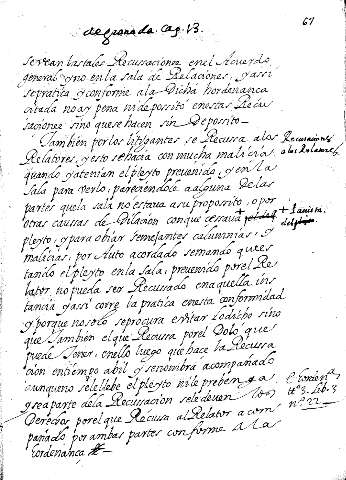 de granada. Cag. 13.
67
se vean las tales Recussaciones en el Acuerdo
general y no en la sala de Relaciones, y assi
se pratica y conforme a la Dicha hordenanca
citada no ay pena ni deposito en estas Recu
saciones sino que se hacen sin Deposito—
Tambien por los litigantes, se Recussa a los
Relatores, y esto se hacia con mucha malicia
quando ya tenian el pleyto prevenido, y en la
sala para verlo, pareciendole a alguna De las
partes que la sala no estava a su proposito, o por
otras caussas de Dilacion con que cessava +
pleyto, y para obiar semejantes calumnias, y
malicias, por Auto acordado se mando que es
tando el pleyto en la sala, prevenido por el Re
lator, no pueda ser Recussado en aquella ins
tancia y assi corre la pratica en esta conformidad
y porque no solo se procura evitar lo dicho sino
que Tambien el que Recussa por el Dolo que
puede Tener, en ello luego que hace la Recussa
cion en tiempo abil y se nombra acompañado
aunque no se le llebe el pleyto ni le prebenga
y sea parte de la Recussacion se le deven los
Derechos por el que Recusa al Relator acom
pañado por ambas partes conforme a la
hordenanca
Recusaciones
a los Relatores
+ la vista
del pleyto
Ordenan.ª
tt.º 3. lib. 3
n.º 22